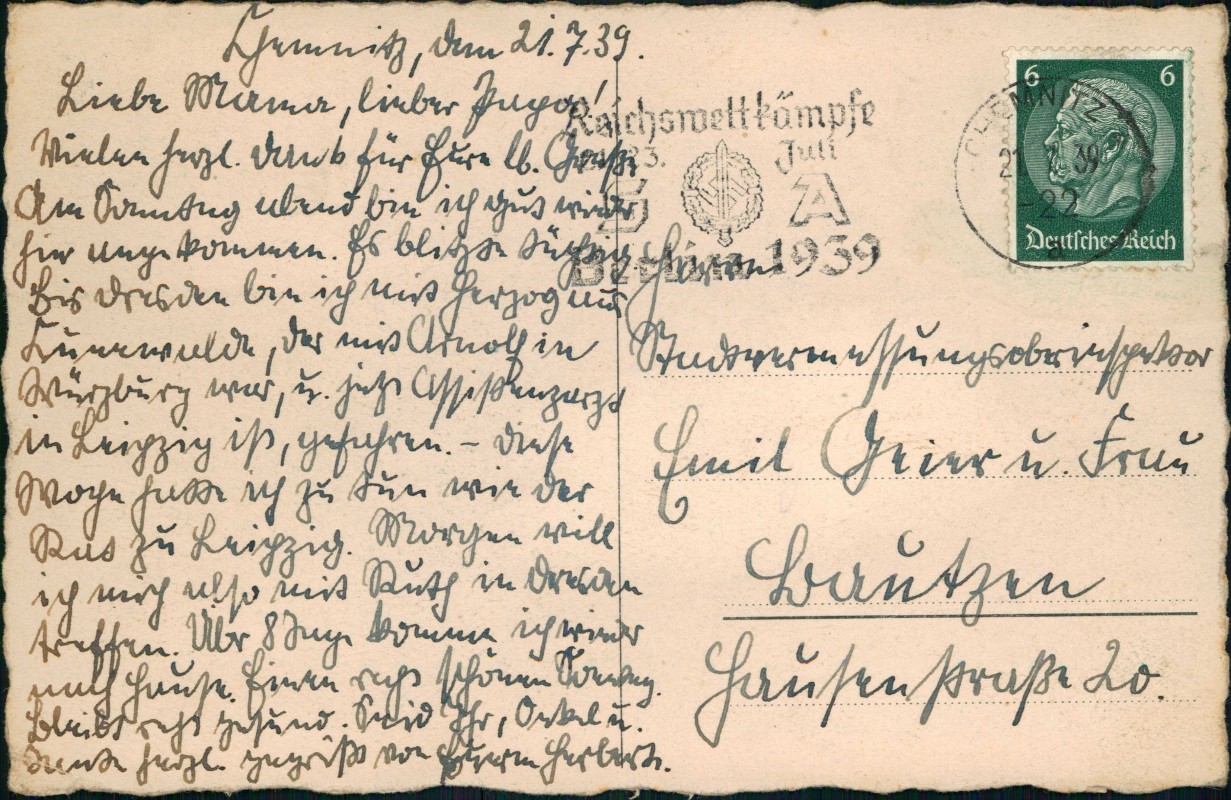 Chemnitz, den 21.7.39.
Liebe Mama, lieber Papa!
Vielen herzl. Dank für Eure lb. Grüße.
Am Sonntag abend bin ich gut wieder
hier angekommen. Es blitzte tüchtig
Bis Dresden bin ich mit Herzog aus
Cunewalde, der mit Arnold in
Würzburg war, u. jetzt Assistenzarzt
in Leipzig ist, gefahren. – Diese
Woche hatte ich zu tun wie der
Rat zu Leipzig. Morgen will
ich mich also mit Ruth in Dresden
treffen. Über 8 Tage komme ich wieder
nach Hause. Einen recht schönen Sonntag.
Bleibt recht gesund. Seid Ihr, Onkel u.
Tante herzl. gegrüßt von Eurem Herbert.
Reichswettkämpfe
23. Juli
S A
Berlin 1939
CHEMNITZ
21. 7. 39
-22
a
6 6
Deutsches Reich
Herrn
Stadtvermessungsoberinspektor
Emil Geier u. Frau
Bautzen
Hausenstraße 20.